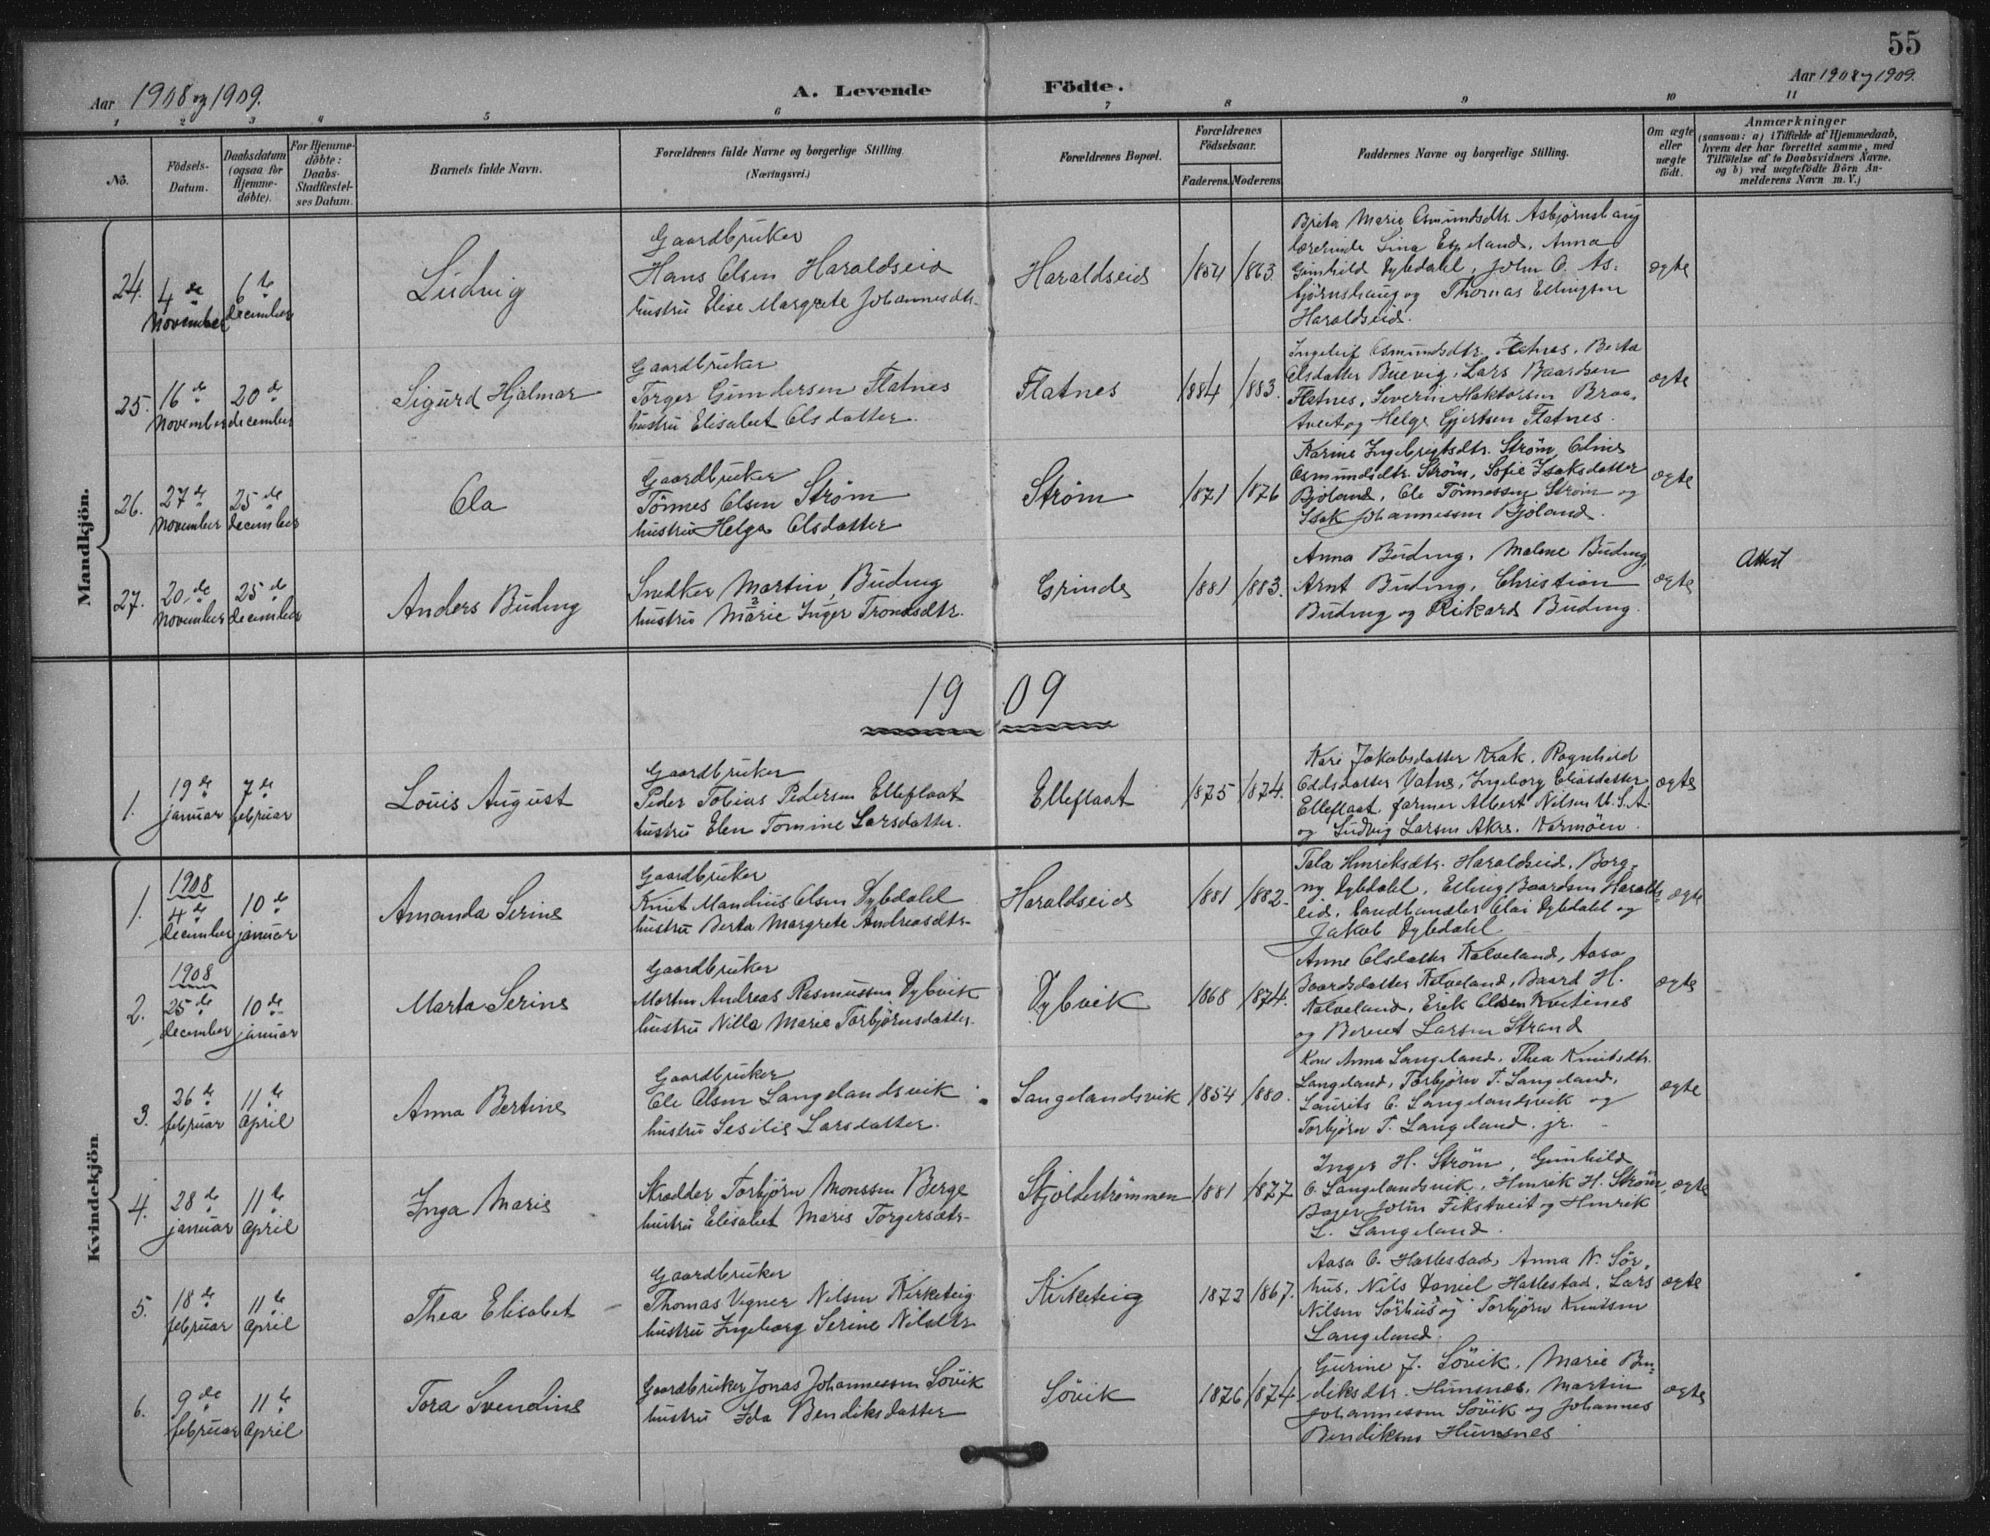 55
Aar 1908 og 1909.
A. Levende Födte.
Aar 1908 og 1909.
1 2 3 4 5 6 7 8 9 10 11
No.
Födsels-
Datum.
Daabsdatum
(ogsaa for
Hjemme-
døbte).
For Hjemme-
døbte:
Daabs-
Stadfæstel-
ses Datum.
Barnets fulde Navn.
Forældrenes fulde Navne og borgerlige Stilling
(Næringsvei.)
Forældrenes Bopæl.
Forældrenes
Födselsaar.
Faderens.
Moderens.
Faddernes Navne og borgerlige Stilling.
Om ægte
eller
uægte
födt.
Anmærkninger
(saasom: a) i Tilfælde af Hjemmedaab,
hvem der har forrettet samme, med
Tilföielse af to Daabsvidners Navne,
og b) ved uægtefödte Börn An-
melderens Navn m. V.)
Mandkjön.
24.
4 de
november
6 te
december
Ludvig
Gaardbruker
Hans Olsen Haraldseid
hustru Elise Margrete Johannesdtr.
Haraldseid
1854
1863.
Brita Marie Osmundsdtr. Asbjørnshaug
lærerinde Lina Espeland, Anna
Gunhild Dybdahl, John O. As-
bjørnshaug og Thomas Ellingsen
Haraldseid.
ægte
25.
16 de
november
20 de
december
Sigurd Hjalmar
Gaardbruker
Torger Gundersen Flatnes
hustru Elisabet Olsdatter.
Flatnes
1884
1883.
Osmundsdtr. Berta
Olsdatter Buevig, Lars Baardsen
Flatnes, Severin Braa-
tveit og Helge Gjertsen Flatnes.
ægte
26.
27 de
november
25 de
december
Ola
Gaardbruker
Tönnes Olsen Strøm
hustru Helga Olsdatter
Strøm
1871
1876
Karine Ingebrigtsdtr. Strøm, Oline
Osmundsdtr. Strøm, Sofie Isaksdatter
Bjoland, Ole Tönnessen Strøm og
Isak Johannessen Bjoland.
ægte
27.
20 de
november
25 de
december
Anders Buding
Snedker Martin Buding
hustru Marie Inger Trondsdtr.
Grinde
1881
1883.
Anna Buding, Malene Buding,
Arnt Buding, Christian
Buding og Rikard Buding.
ægte
Attest
1909
1.
19 de
januar
7 de
februar
Louis August
Gaardbruker
Peder Tobias Pedersen Elleflaat
hustru Elen Tomine Larsdatter.
Elleflaat
1875
1874.
Kari Jakobsdatter Krak, Ragnhild
Oddsdatter Vatne, Ingeborg Eliasdatter
Elleflaat, farmer Albert Nilsen U.S.A.
og Ludvig Larsen Akre. Karmöen.
ægte
Kvindekjön.
1.
1908
4 de
december
10 de
januar
Amanda Serine
Gaardbruker
Knut Mandius Olsen Dybdahl
hustru Berta Margrete Andreasdtr.
Haraldseid
1881
1882.
Tala Henriksdtr. Haraldseid, Borg-
ny Dybdahl, Elling Baardsen Haralds-
eid, landhandler Olai Dybdahl og
Jakob Dybdahl
ægte
2.
1908
25 de
december
10 de
januar
Marta Serine
Gaardbruker
Morten Andreas Rasmussen Dybvik
hustru Nilla Marie Torbjørnsdatter.
Dybvik
1868
1874.
Anne Olsdatter Kalveland, Aasa
Baardsdatter Kalveland, Baard H.
Kalveland, Erik Olsen Kvitines
og Berent Larsen Strand
ægte
3.
26 de
februar
11 te
April
Anna Bertine
Gaardbruker
Ole Olsen Langelandsvik
hustru Sesilie Larsdatter.
Langelandsvik
1854
1880.
Kone Anna Langeland, Thea Knutsdtr.
Langeland, Torbjørn T. Langeland,
Laurits O. Langelandsvik og
Torbjørn T. Langeland. jr.
ægte
4.
28 de
januar
11 te
April
Inga Marie
Skrædder Torbjørn Monssen Berge
hustru Elisabet Marie Torgersdtr.
Skjoldestrømmen
1881
1877
Inger H. Strøm, Gunhild
O. Langelandsvik, Henrik H. Strøm,
Bager John Fikstveit og Henrik
L. Langeland.
ægte
5.
18 de
februar
11 te
April
Thea Elisabet
Gaardbruker
Thomas Vegner Nilsen Kirketeig
hustru Ingeborg Serine Nilsdtr
Kirketeig
1872
1867.
Aasa O. Hatlestad, Anna N. Sör-
hus, Nils Daniel Hatlestad, Lars
Nilsen Sörhus og Torbjørn Knutsen
Langeland.
ægte
6.
9 de
februar
11 te
April
Tora Svendine
Gaardbruker Jonas Johannessen Sövik
hustru Ida Bendiksdatter
Sövik
1876
1874.
Gurine J. Sövik, Marie Ben-
diksdtr. Humsnes, Martin
Johannessen Sövik og Johannes
Bendiksen Humsnes
ægte